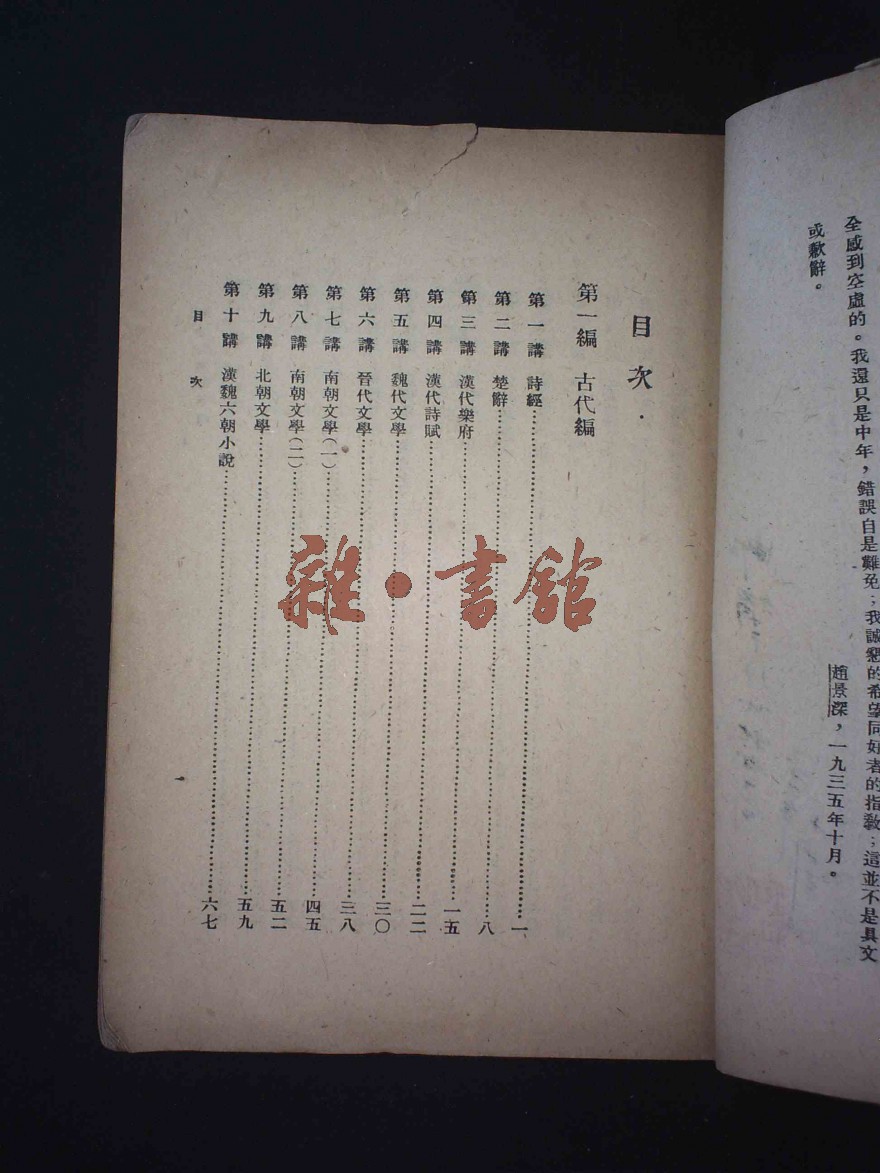 全感到空虛的。我還只是中年，錯誤自是難免；我誠懇的希望同好者的指敎；這並不是具文
或歉辭。
趙景深，一九三五年十月。
目次
第一編 古代編
第一講 詩經 一
第二講 楚辭 八
第三講 漢代樂府 一五
第四講 漢代詩賦 二二
第五講 魏代文學 三〇
第六講 晉代文學 三八
第七講 南朝文學（一） 四五
第八講 南朝文學（二） 五二
第九講 北朝文學 五九
第十講 漢魏六朝小說 六七
目次
雜·書館